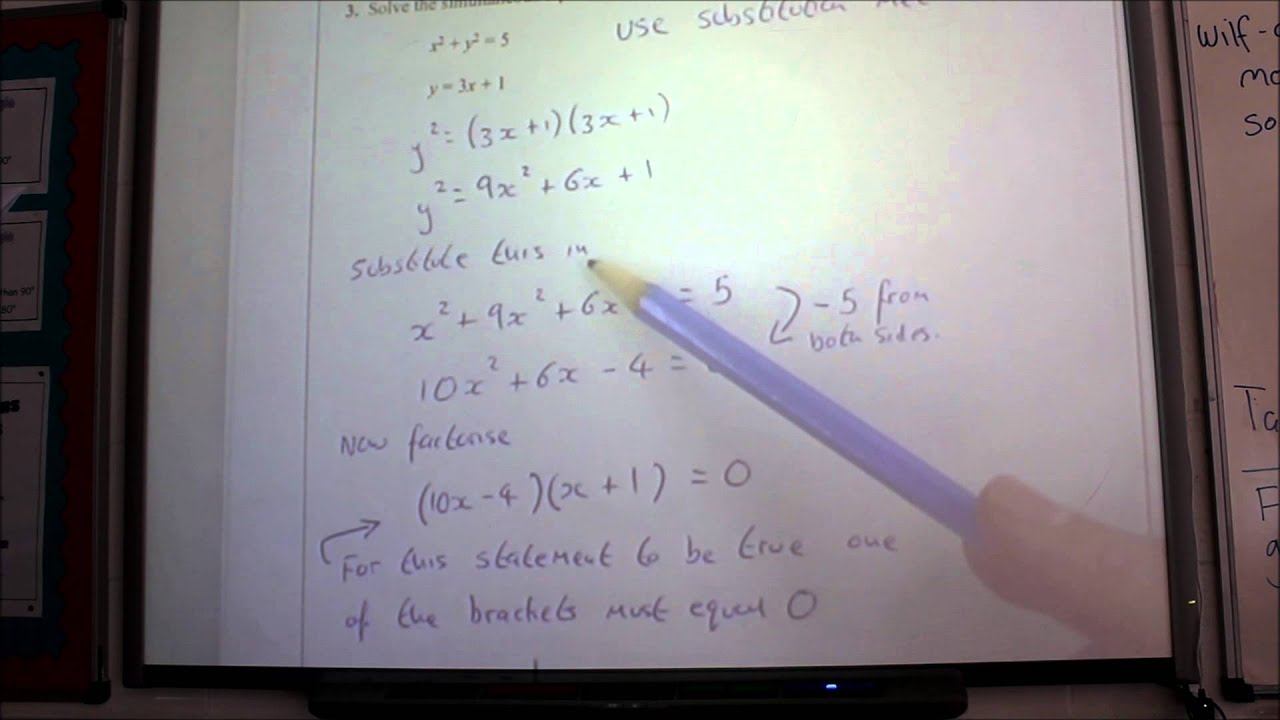 3. Solve the
USE substitution
x² + y² = 5
y = 3x + 1
y² = (3x + 1)(3x + 1)
y² = 9x² + 6x + 1
Substitute this in
x² + 9x² + 6x = 5
- 5 from
both sides.
10x² + 6x - 4 =
Now factorise
(10x - 4)(x + 1) = 0
For this statement to be true one
of the brackets must equal 0
Wilf-
mo
so
Ta
F
than 90°